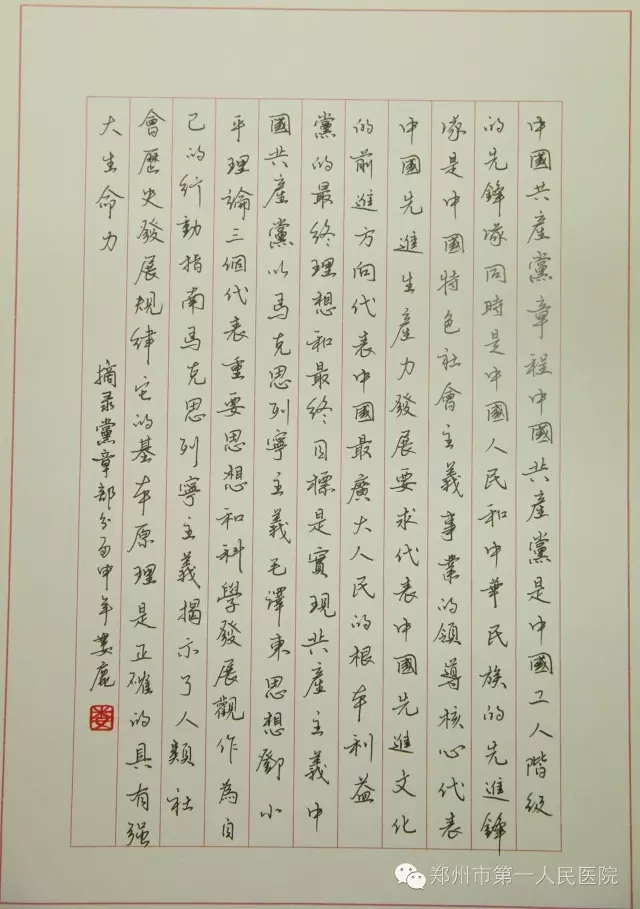 中國共產黨章程中國共產黨是中國工人階級
的先鋒隊同時是中國人民和中華民族的先進鋒
隊是中國特色社會主義事業的領導核心代表
中國先進生產力發展要求代表中國先進文化
的前進方向代表中國最廣大人民的根本利益
黨的最終理想和最終目標是實現共產主義中
國共產黨以馬克思列寧主義毛澤東思想鄧小
平理論三個代表重要思想和科學發展觀作為自
己的行動指南馬克思列寧主義揭示了人類社
會歷史發展規律它的基本原理是正確的具有强
大生命力
摘录黨章部分丙申年娄鹿
娄
郑州市第一人民医院